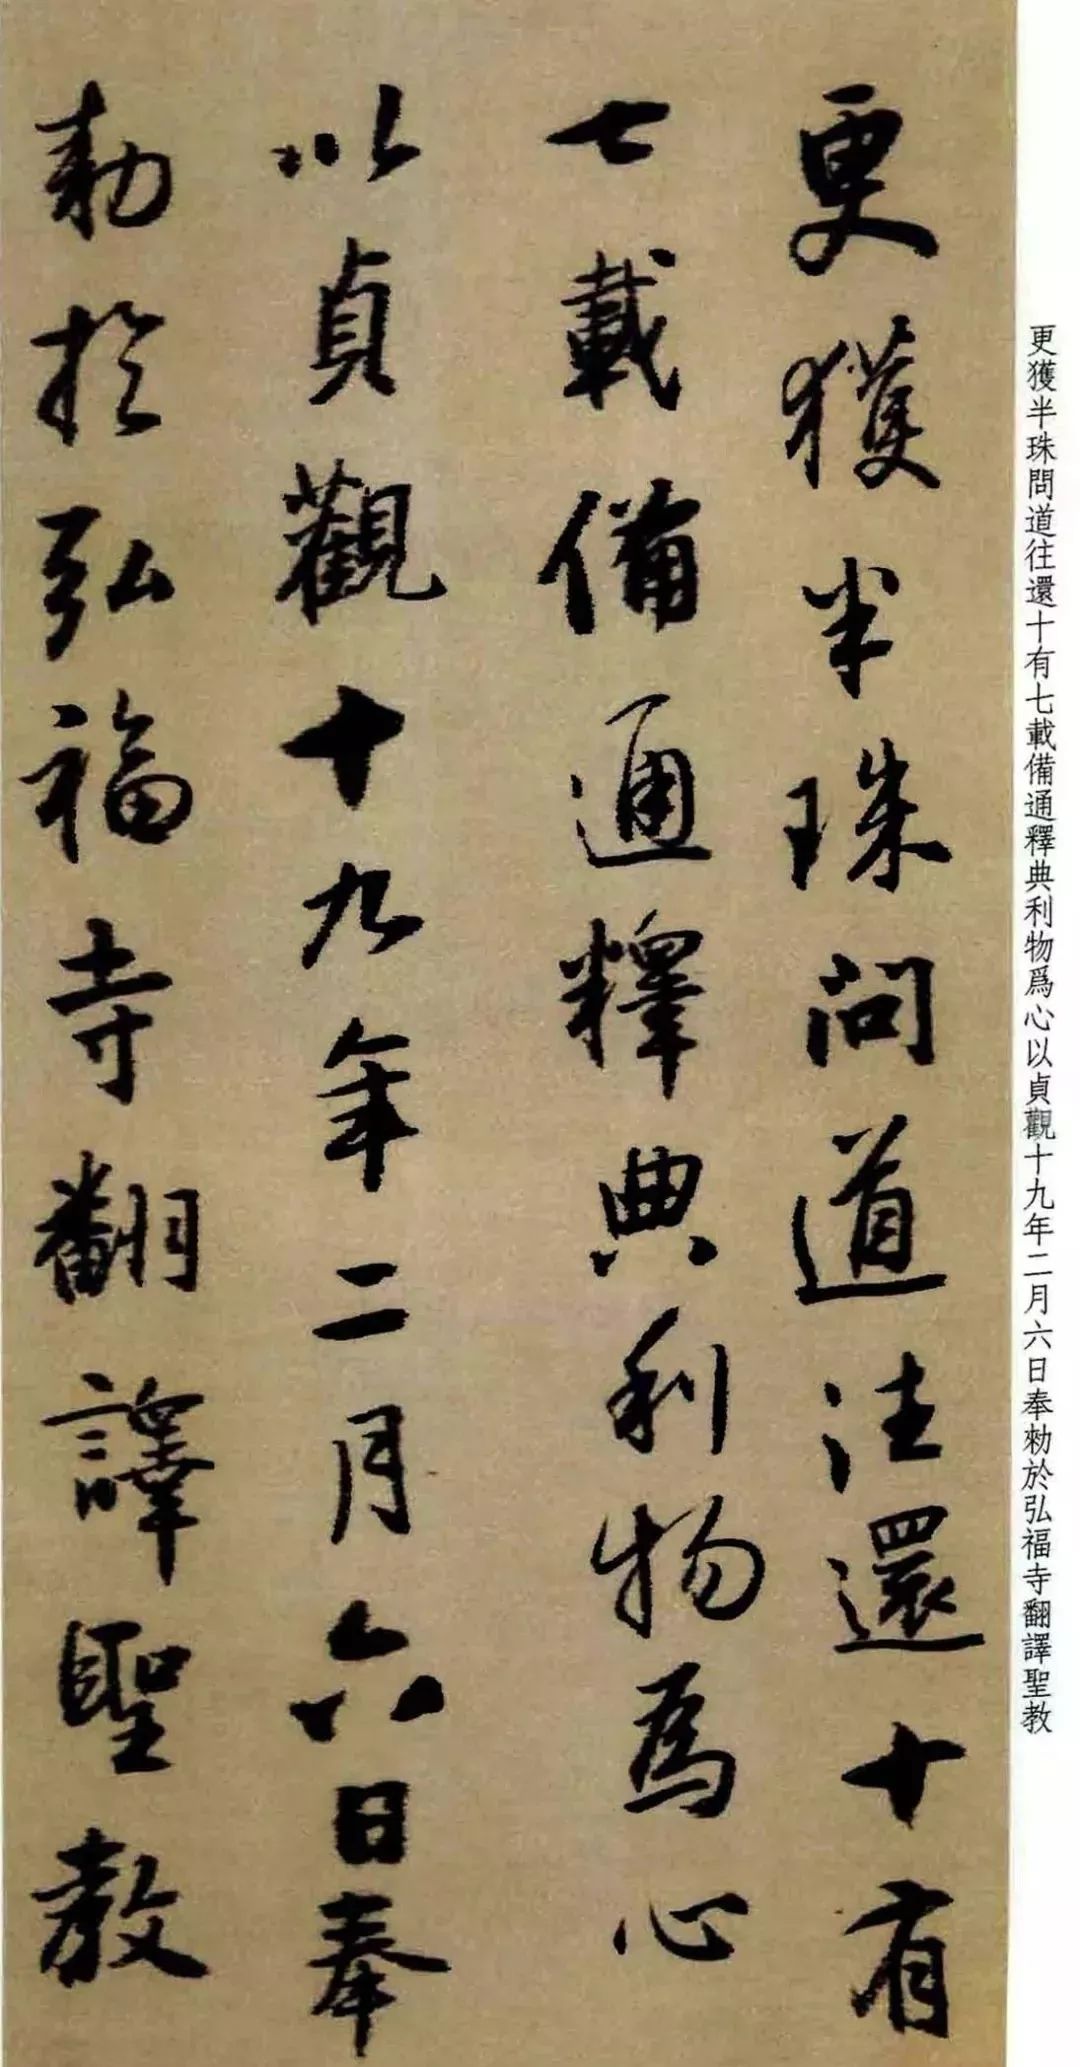 更獲半珠問道往還十有
七載備通釋典利物為心
以貞觀十九年二月六日奉
勑於弘福寺翻譯聖教
更獲半珠問道往還十有七載備通釋典利物爲心以貞觀十九年二月六日奉勑於弘福寺翻譯聖教